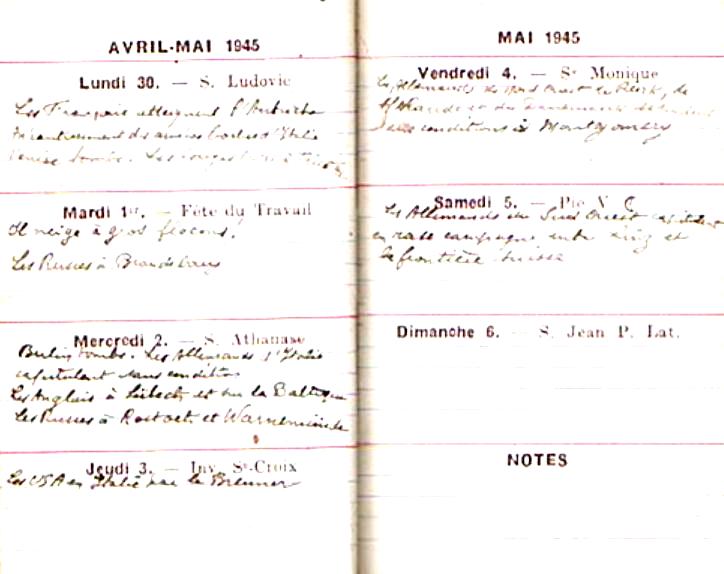 AVRIL-MAI 1945
Lundi 30. — S. Ludovic
Les Français atteignent l'Autriche
des armées d'Italie
Venise tombe. Les
Mardi 1er. — Fête du Travail
Il neige à gros flocons!
Les Russes à Brandebourg
Mercredi 2. — S. Athanase
Berlin tombe. Les Allemands d'Italie
capitulent sans condition
Les Anglais à Lübeck et sur la Baltique
Les Russes à Rostock et Warnemünde
Jeudi 3. — Inv. Ste-Croix
Les USA en Italie par le Brenner
MAI 1945
Vendredi 4. — Se Monique
Les Allemands du Nord Ouest de
Hollande et du Danemark
sans conditions à Montgomery
Samedi 5. — Pie V C
Les Allemands du Sud Ouest capitulent
en rase campagne entre Linz et
la frontière suisse
Dimanche 6. — S. Jean P. Lat.
NOTES